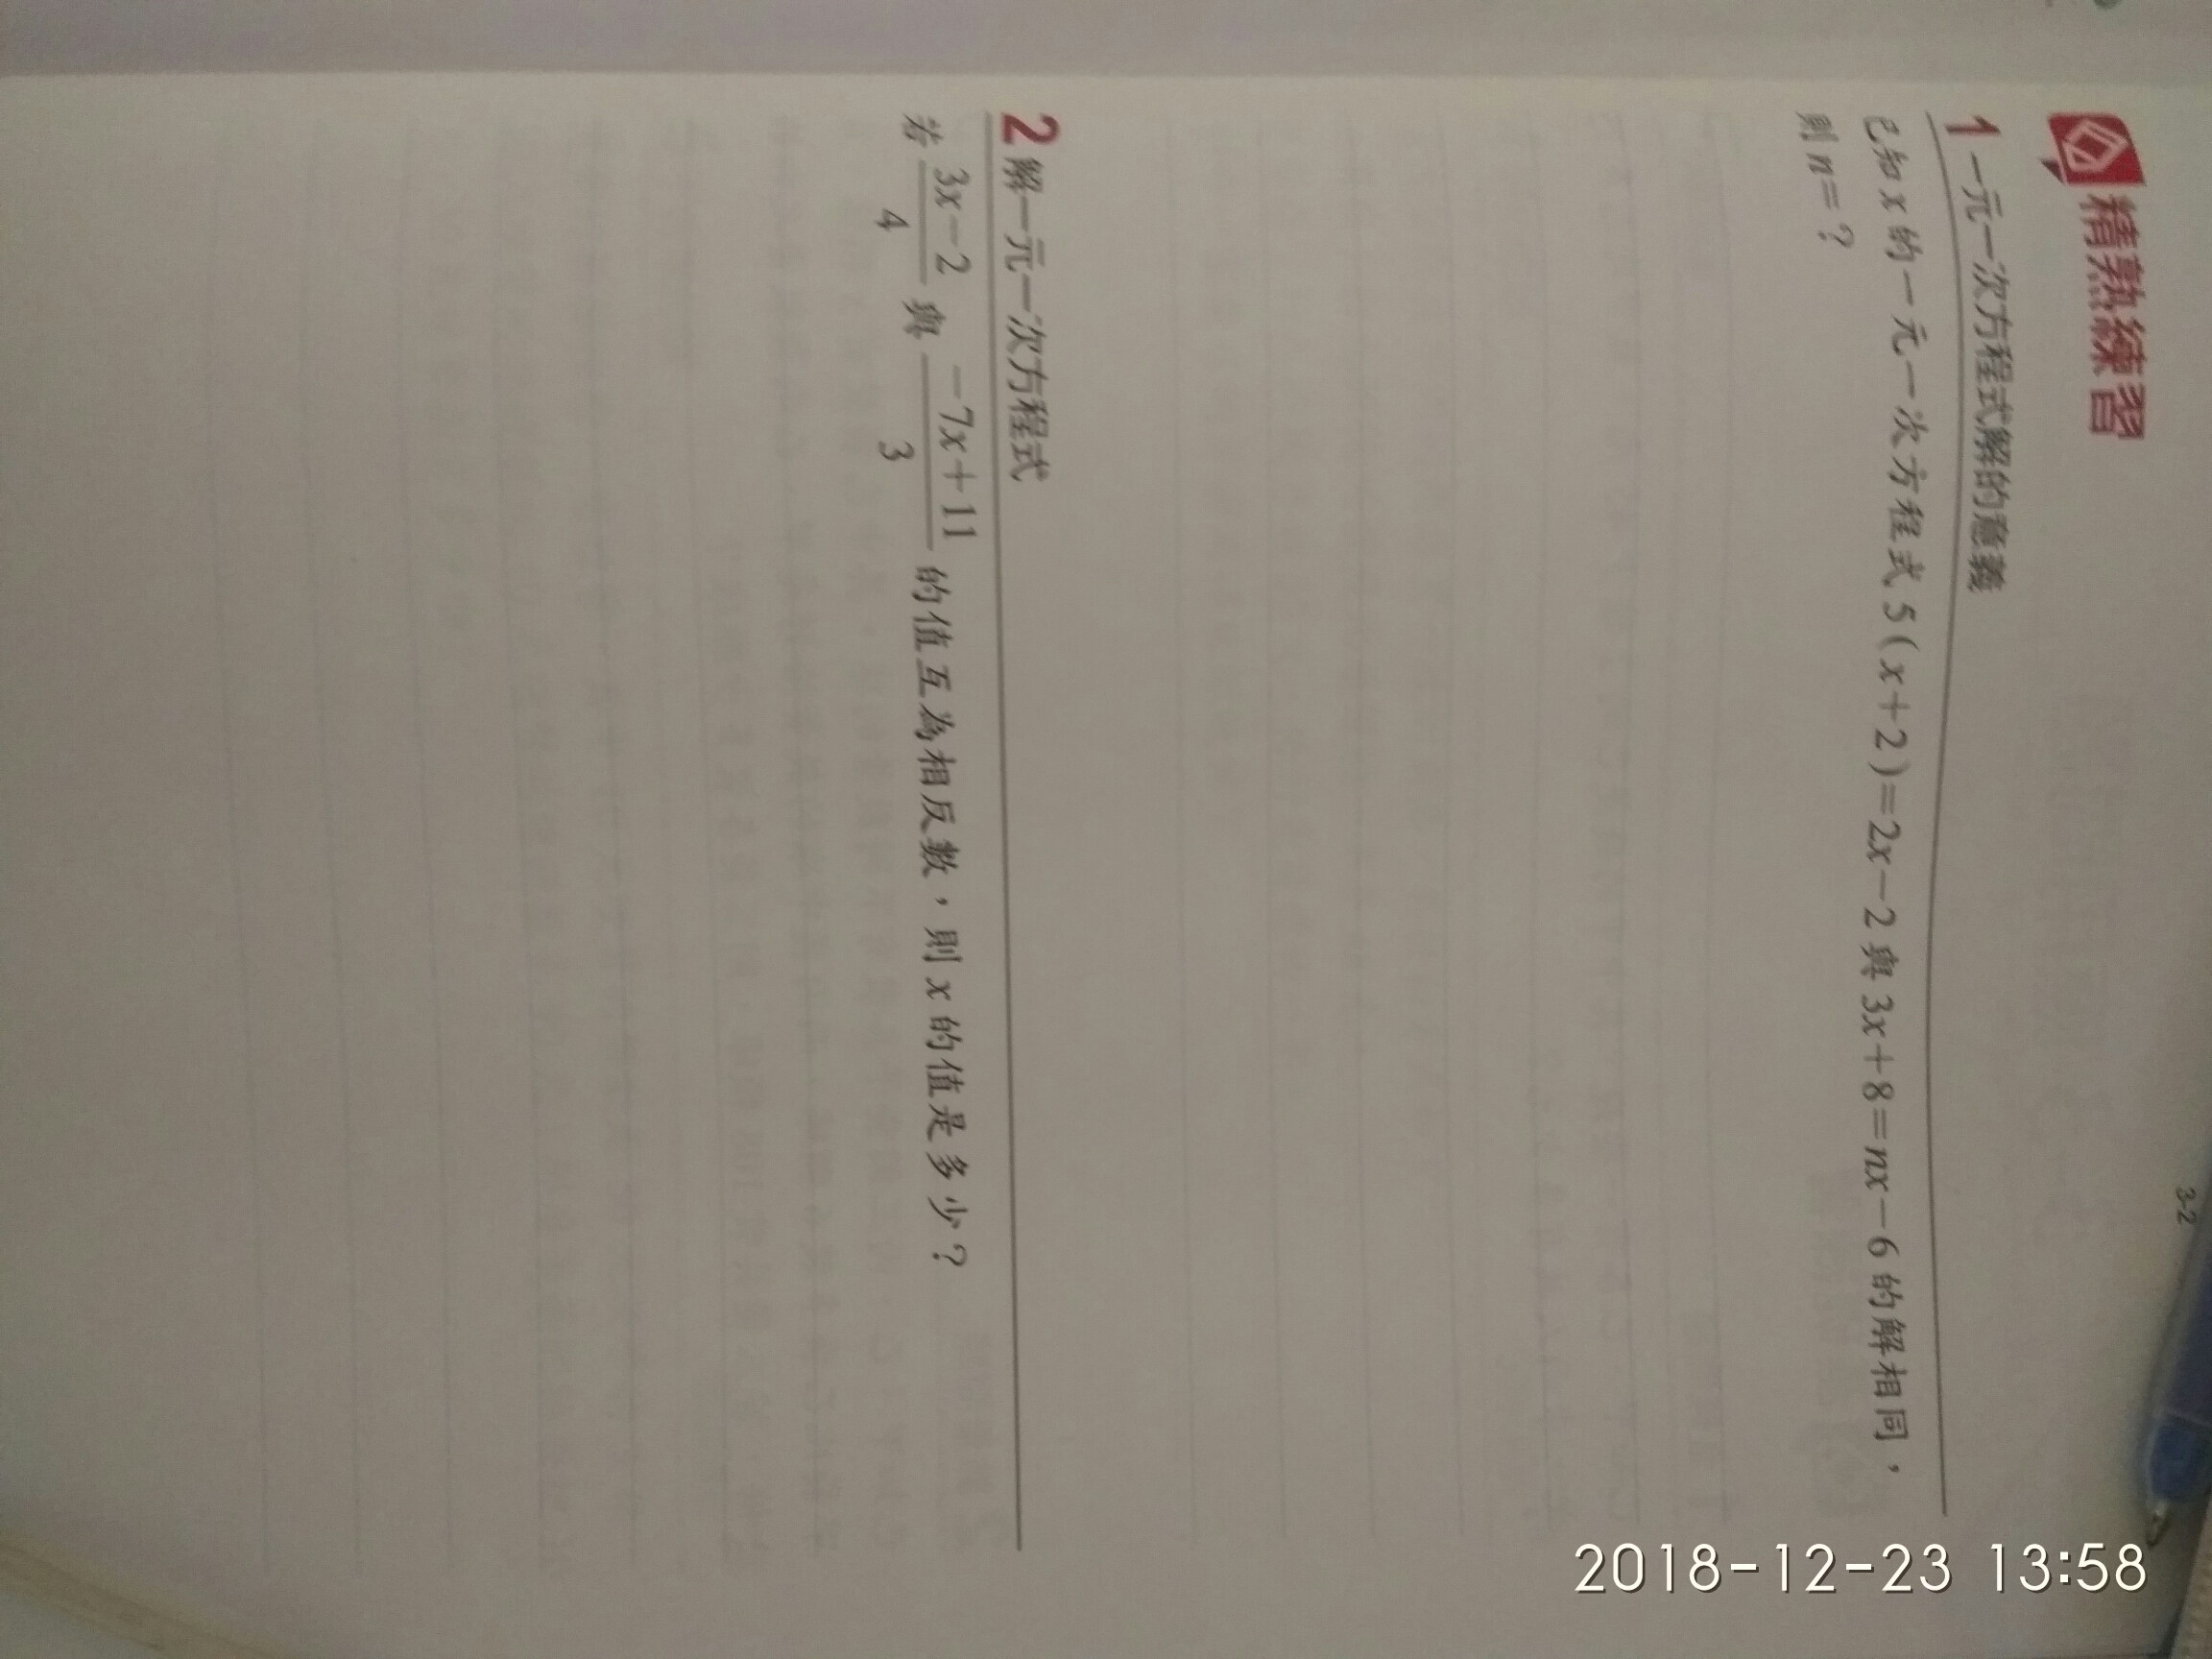 3-2
精熟練習
1 一元一次方程式解的意義
已知 x 的一元一次方程式 5(x+2)=2x-2 與 3x+8=nx-6 的解相同，
則 n=？
2 解一元一次方程式
若 (3x-2)/4 與 (-7x+11)/3 的值互為相反數，則 x 的值是多少？
2018-12-23 13:58